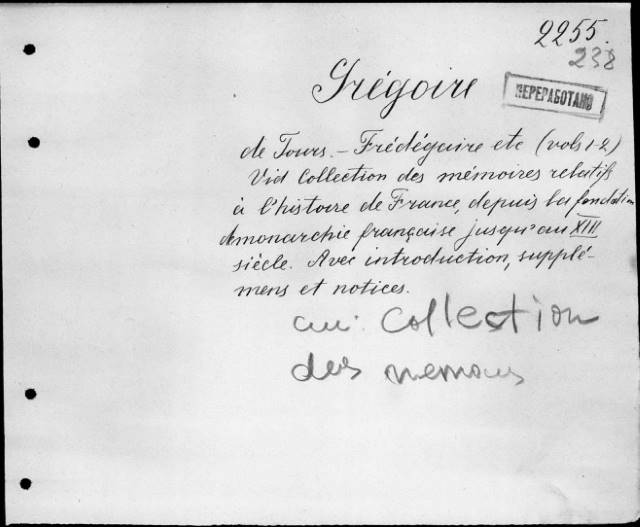 2255.
238
Grégoire
ПЕРЕРАБОТАНО
de Tours. – Frédégaire etc (vols 1-2)
Vid Collection des mémoires relatifs
à l'histoire de France, depuis la fondation
d monarchie française jusqu'au XIII
siècle. Avec introduction, supplé-
mens et notices.
см: Collection
des memoires